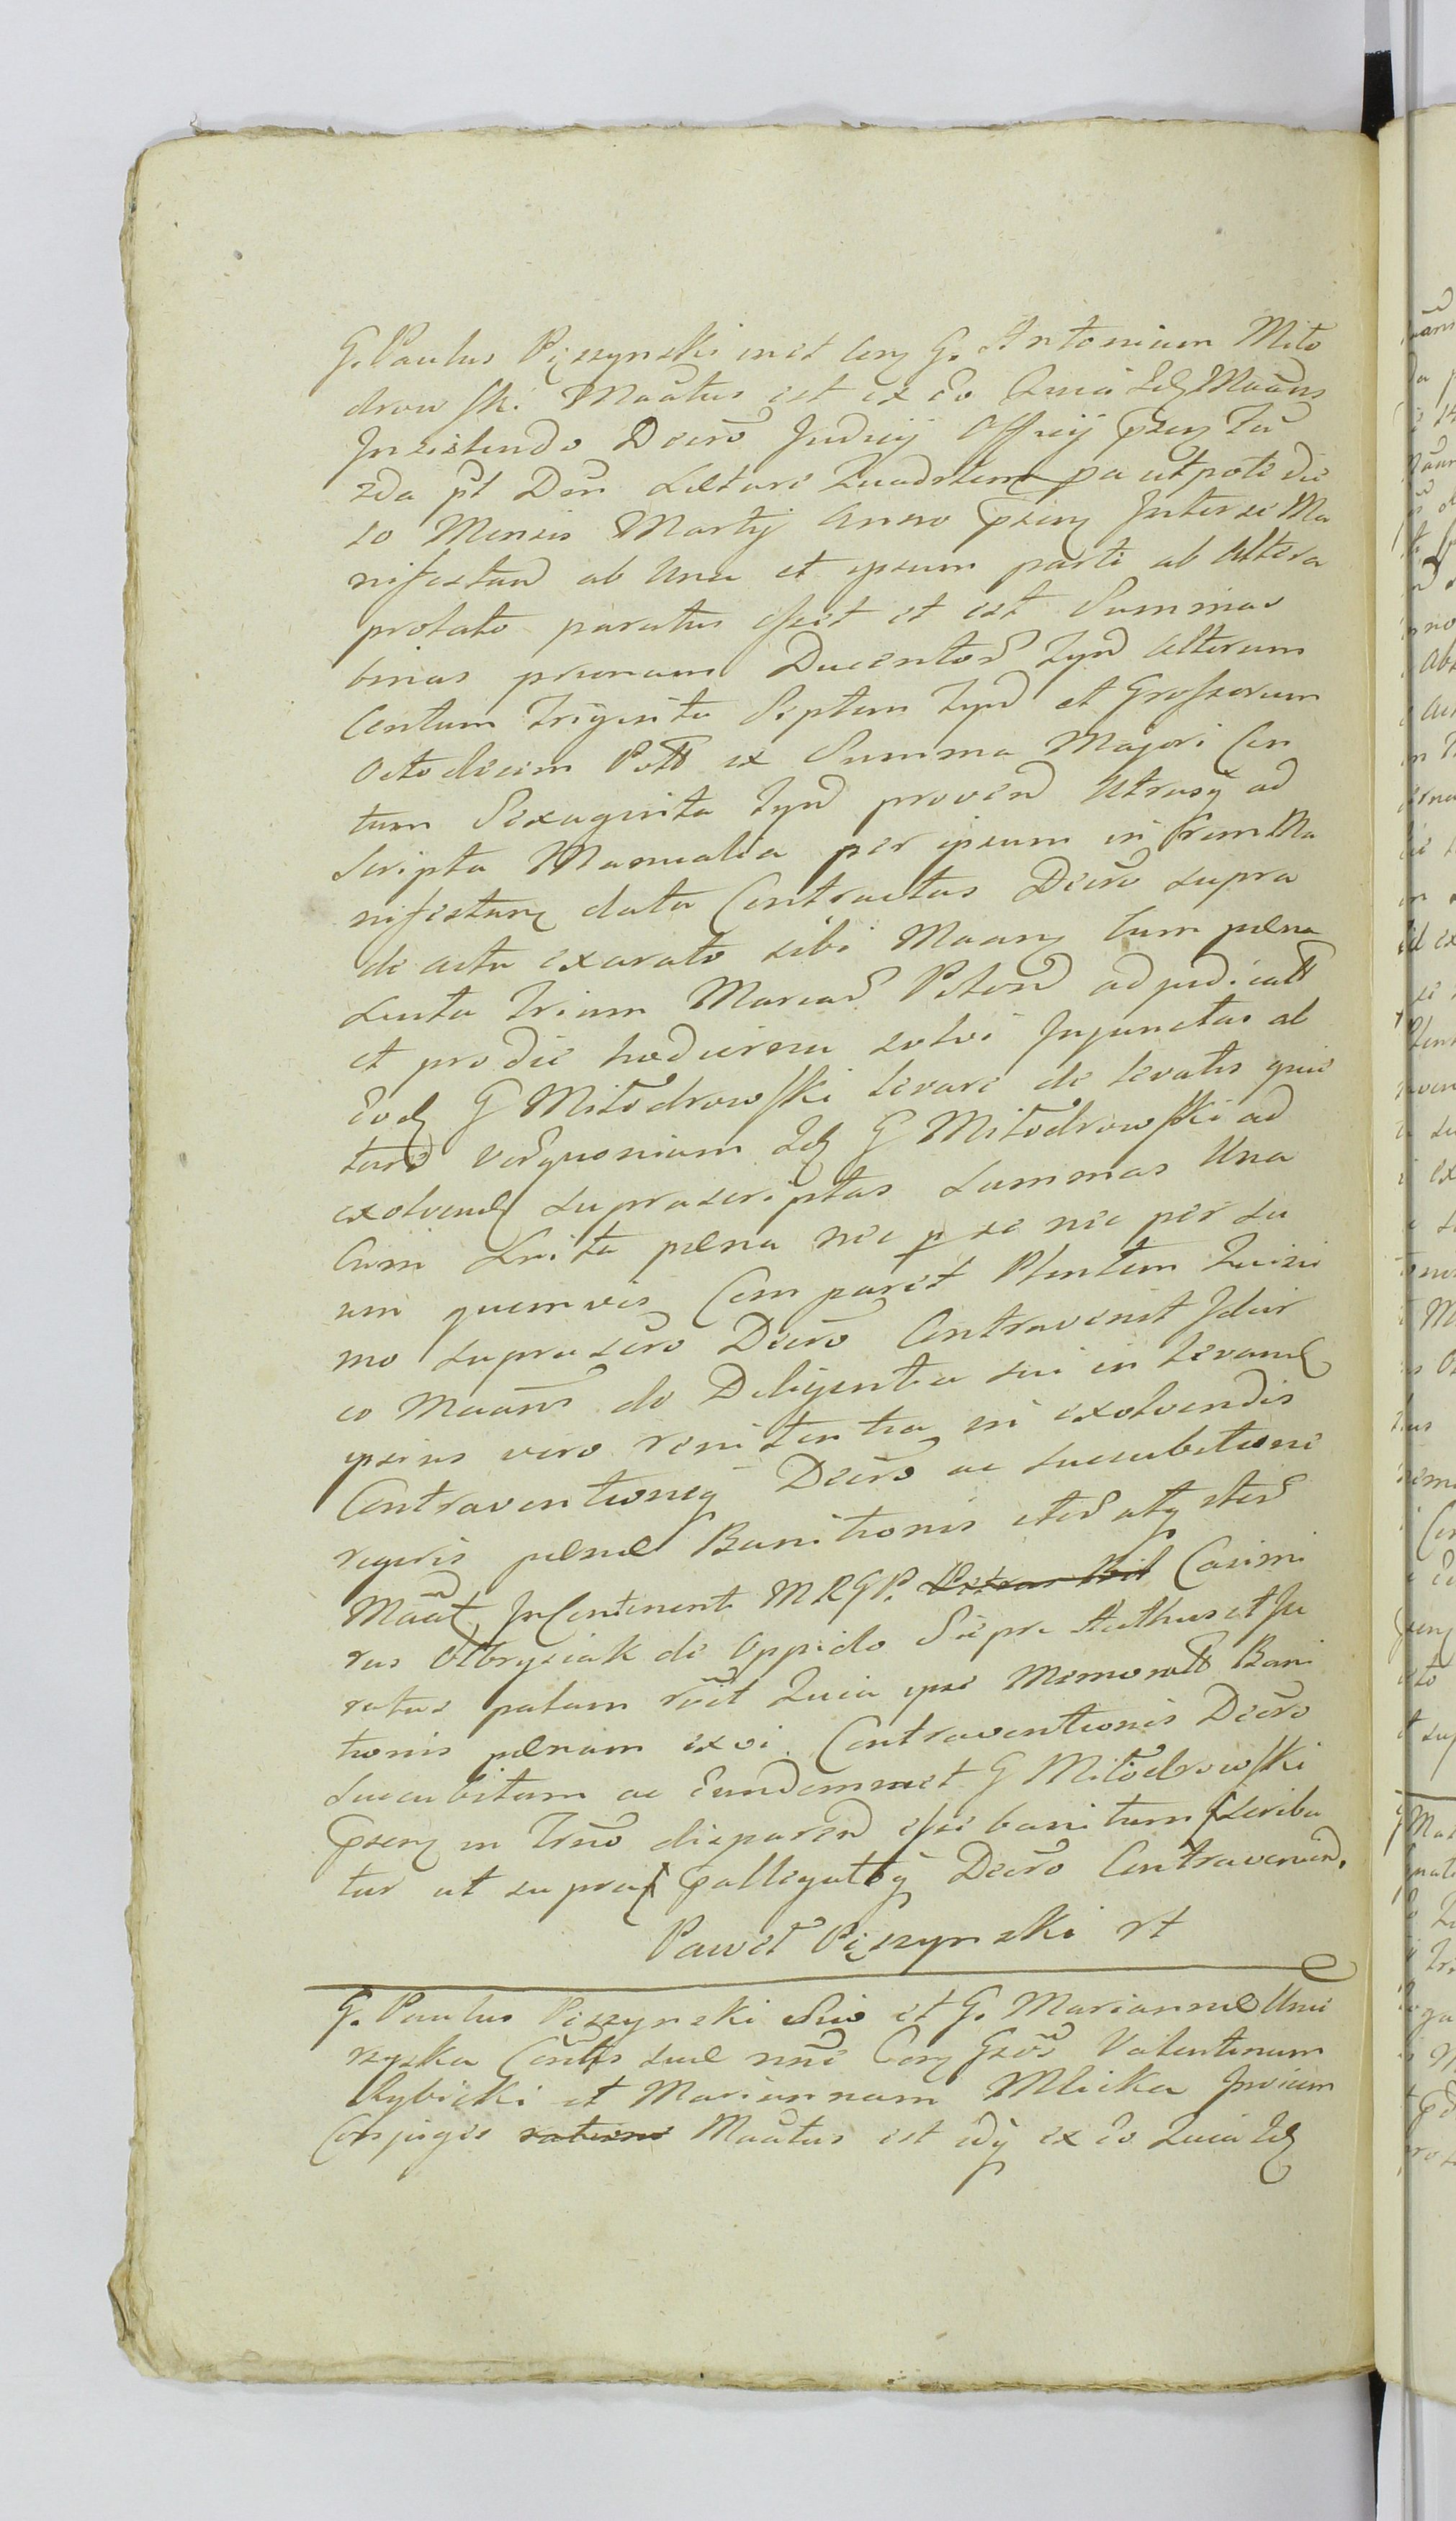 G. Paulus Pięszynski in et Con G. Antonium Miło
drowski Maatus est ex eo Quia Idq Maans
Insistendo Decro Judicij Officij psen
2da pt Dom Lætare Quadrlem utpote die
10 Mensis Martij Anno psen Inter se Ma
nifestan ab Una et ipsum parti ab Altera
prolato paratus esset et est Summas
binas primam Ducentor Tyn alteram
Centum Triginta Septem Tynf et Grossorum
Octodecim Poll ex Summa Majori Cen
tum Sexaginta Tynf proven Utrasq ad
Scripta Manualia per ipsum in rem Ma
nifestanq data Contractas Decro supra
de actu exarato sibi Maanq Cum pæna
Luita Trium Marcar Polon adjudicatt
et pro die hodierna solvi Injunctas ab
Eodq G Miłodrowski levare de levatis quie
tare Verquoniam Idq G Miłodrowski ad
exolvend suprascriptas summas Una
Cum Luita pæna nec p se nec per su
um quemvis Comparet Plentem Quini
mo suprascro Decro Contravenit Idcir
co Maans de Diligentia sui in levand
ipsius vero renitentia in exolvendis
Contraventioneq Decro ac succubitione
rigoris pænæ Banitionis iter atq iter
Maat In Continenti MRGP. Casimi
rus Olbrysiak de Oppido Sieprc Authus et Ju
ratus palam rcit Quia ipse Memoratt Bani
tionis pænam exvi Contraventionis Decro
Succubitam ac Eundemmet G Miłodrowski
psenq in Trno disparen esse banitum scriba
tur ut supra palligattq Decro Contravenien.
Paweł Pięszynski rt
G. Paulus Pięszynski Suo et G. Mariannæ Umi
nzyska Contis suæ nne Conq Gsos Valentinum
Rybicki et Mariannam Mlicka Invicem
Conjuges ratione Maatus est idq ex eo Quia Idq